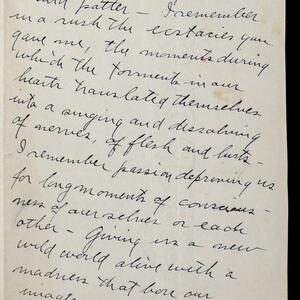 and patter – I remember
in a rush the ecstasies you
gave me, the moments during
which the torments in our
hearts translated themselves
into a singing and dissolving
of nerves, of flesh and lusts –
I remember passion depriving us
for long moments of conscious-
ness of ourselves or each
other – Giving us a new
wild world alive with a
madness that bore our